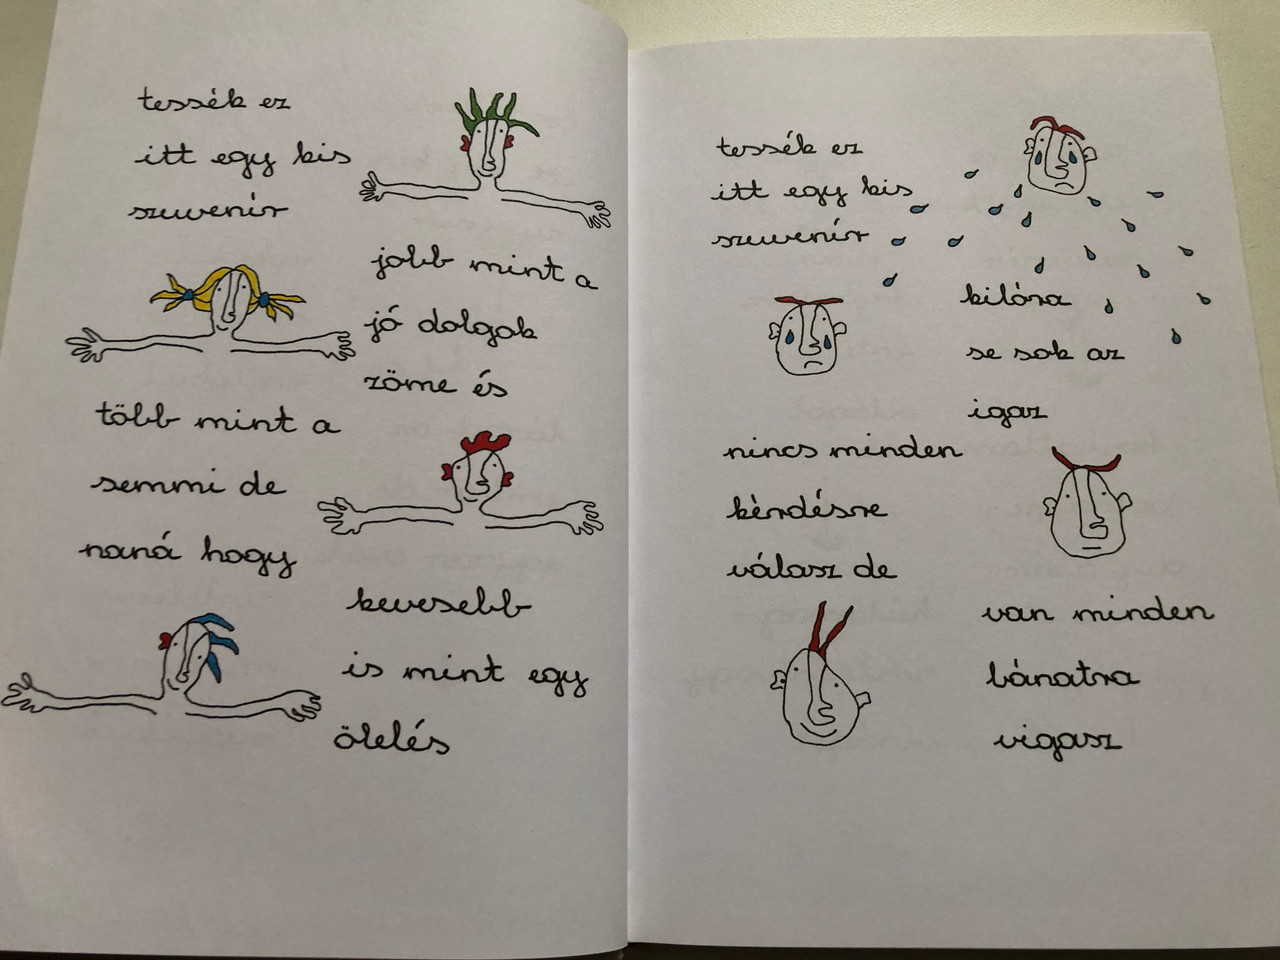 tessék ez
itt egy kis
szuvenír
jobb mint a
jó dolgok
zöme és
több mint a
semmi de
naná hogy
kevesebb
is mint egy
ölelés
tessék ez
itt egy kis
szuvenír
kilóra
se sok az
igaz
nincs minden
kérdésre
válasz de
van minden
bánatra
vigasz